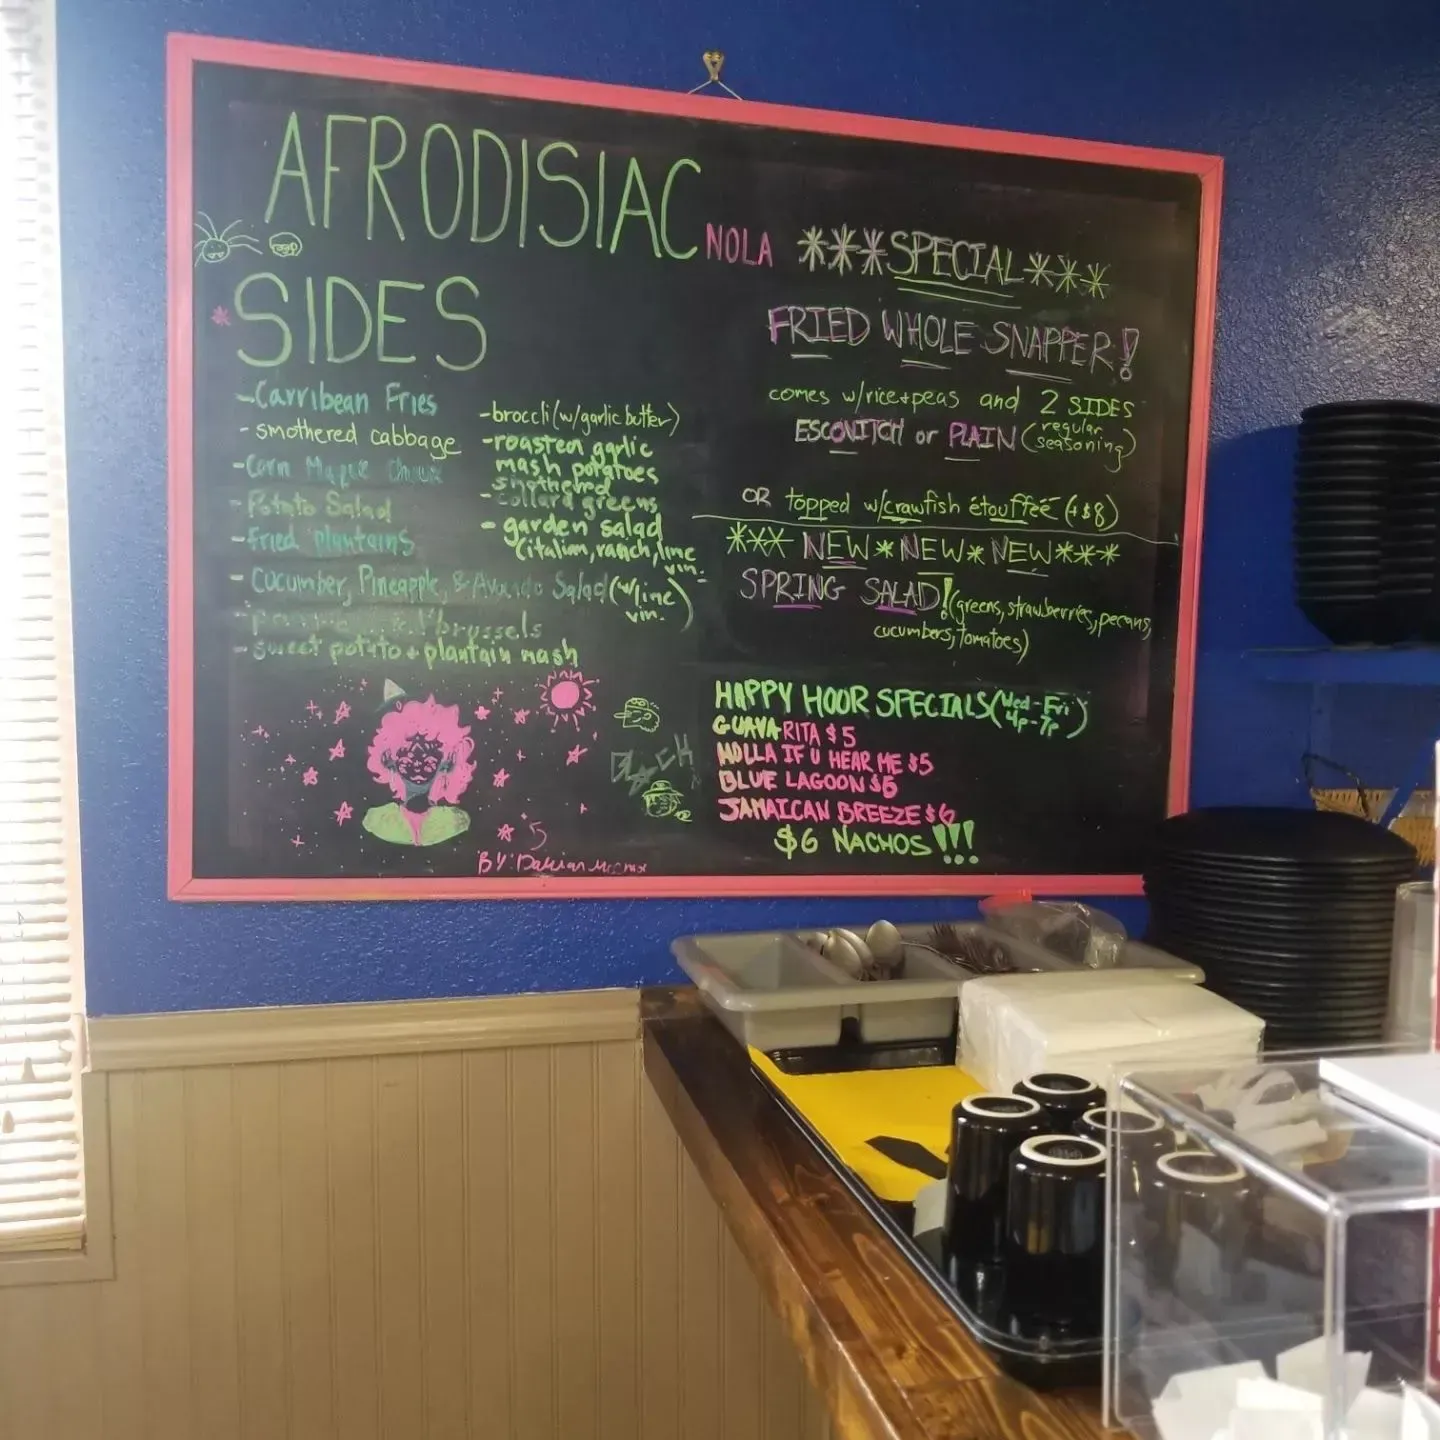 AFRODISIAC NOLA
* SIDES
- Carribean Fries
- smothered cabbage
- Corn Maque Choux
- Potato Salad
- Fried Plantains
- Cucumber, Pineapple, & Avocado Salad (w/ lime vin.)
brussels
- sweet potato + plantain mash
- broccli (w/ garlic butter)
- roasted garlic
mash potatoes
smothered
- collard greens
- garden salad
(italian, ranch, lime
vin.
***SPECIAL***
FRIED WHOLE SNAPPER!
comes w/rice + peas and 2 SIDES
ESCOVITCH or PLAIN (regular seasoning)
OR topped w/crawfish étouffée (+$8)
*** NEW * NEW * NEW ***
SPRING SALAD! (greens, strawberries, pecans,
cucumbers, tomatoes)
HAPPY HOUR SPECIALS (Wed-Fri 4p-7p)
GUAVARITA $5
HOLLA IF U HEAR ME $5
BLUE LAGOON $6
JAMAICAN BREEZE $6
$6 NACHOS!!!
BY: